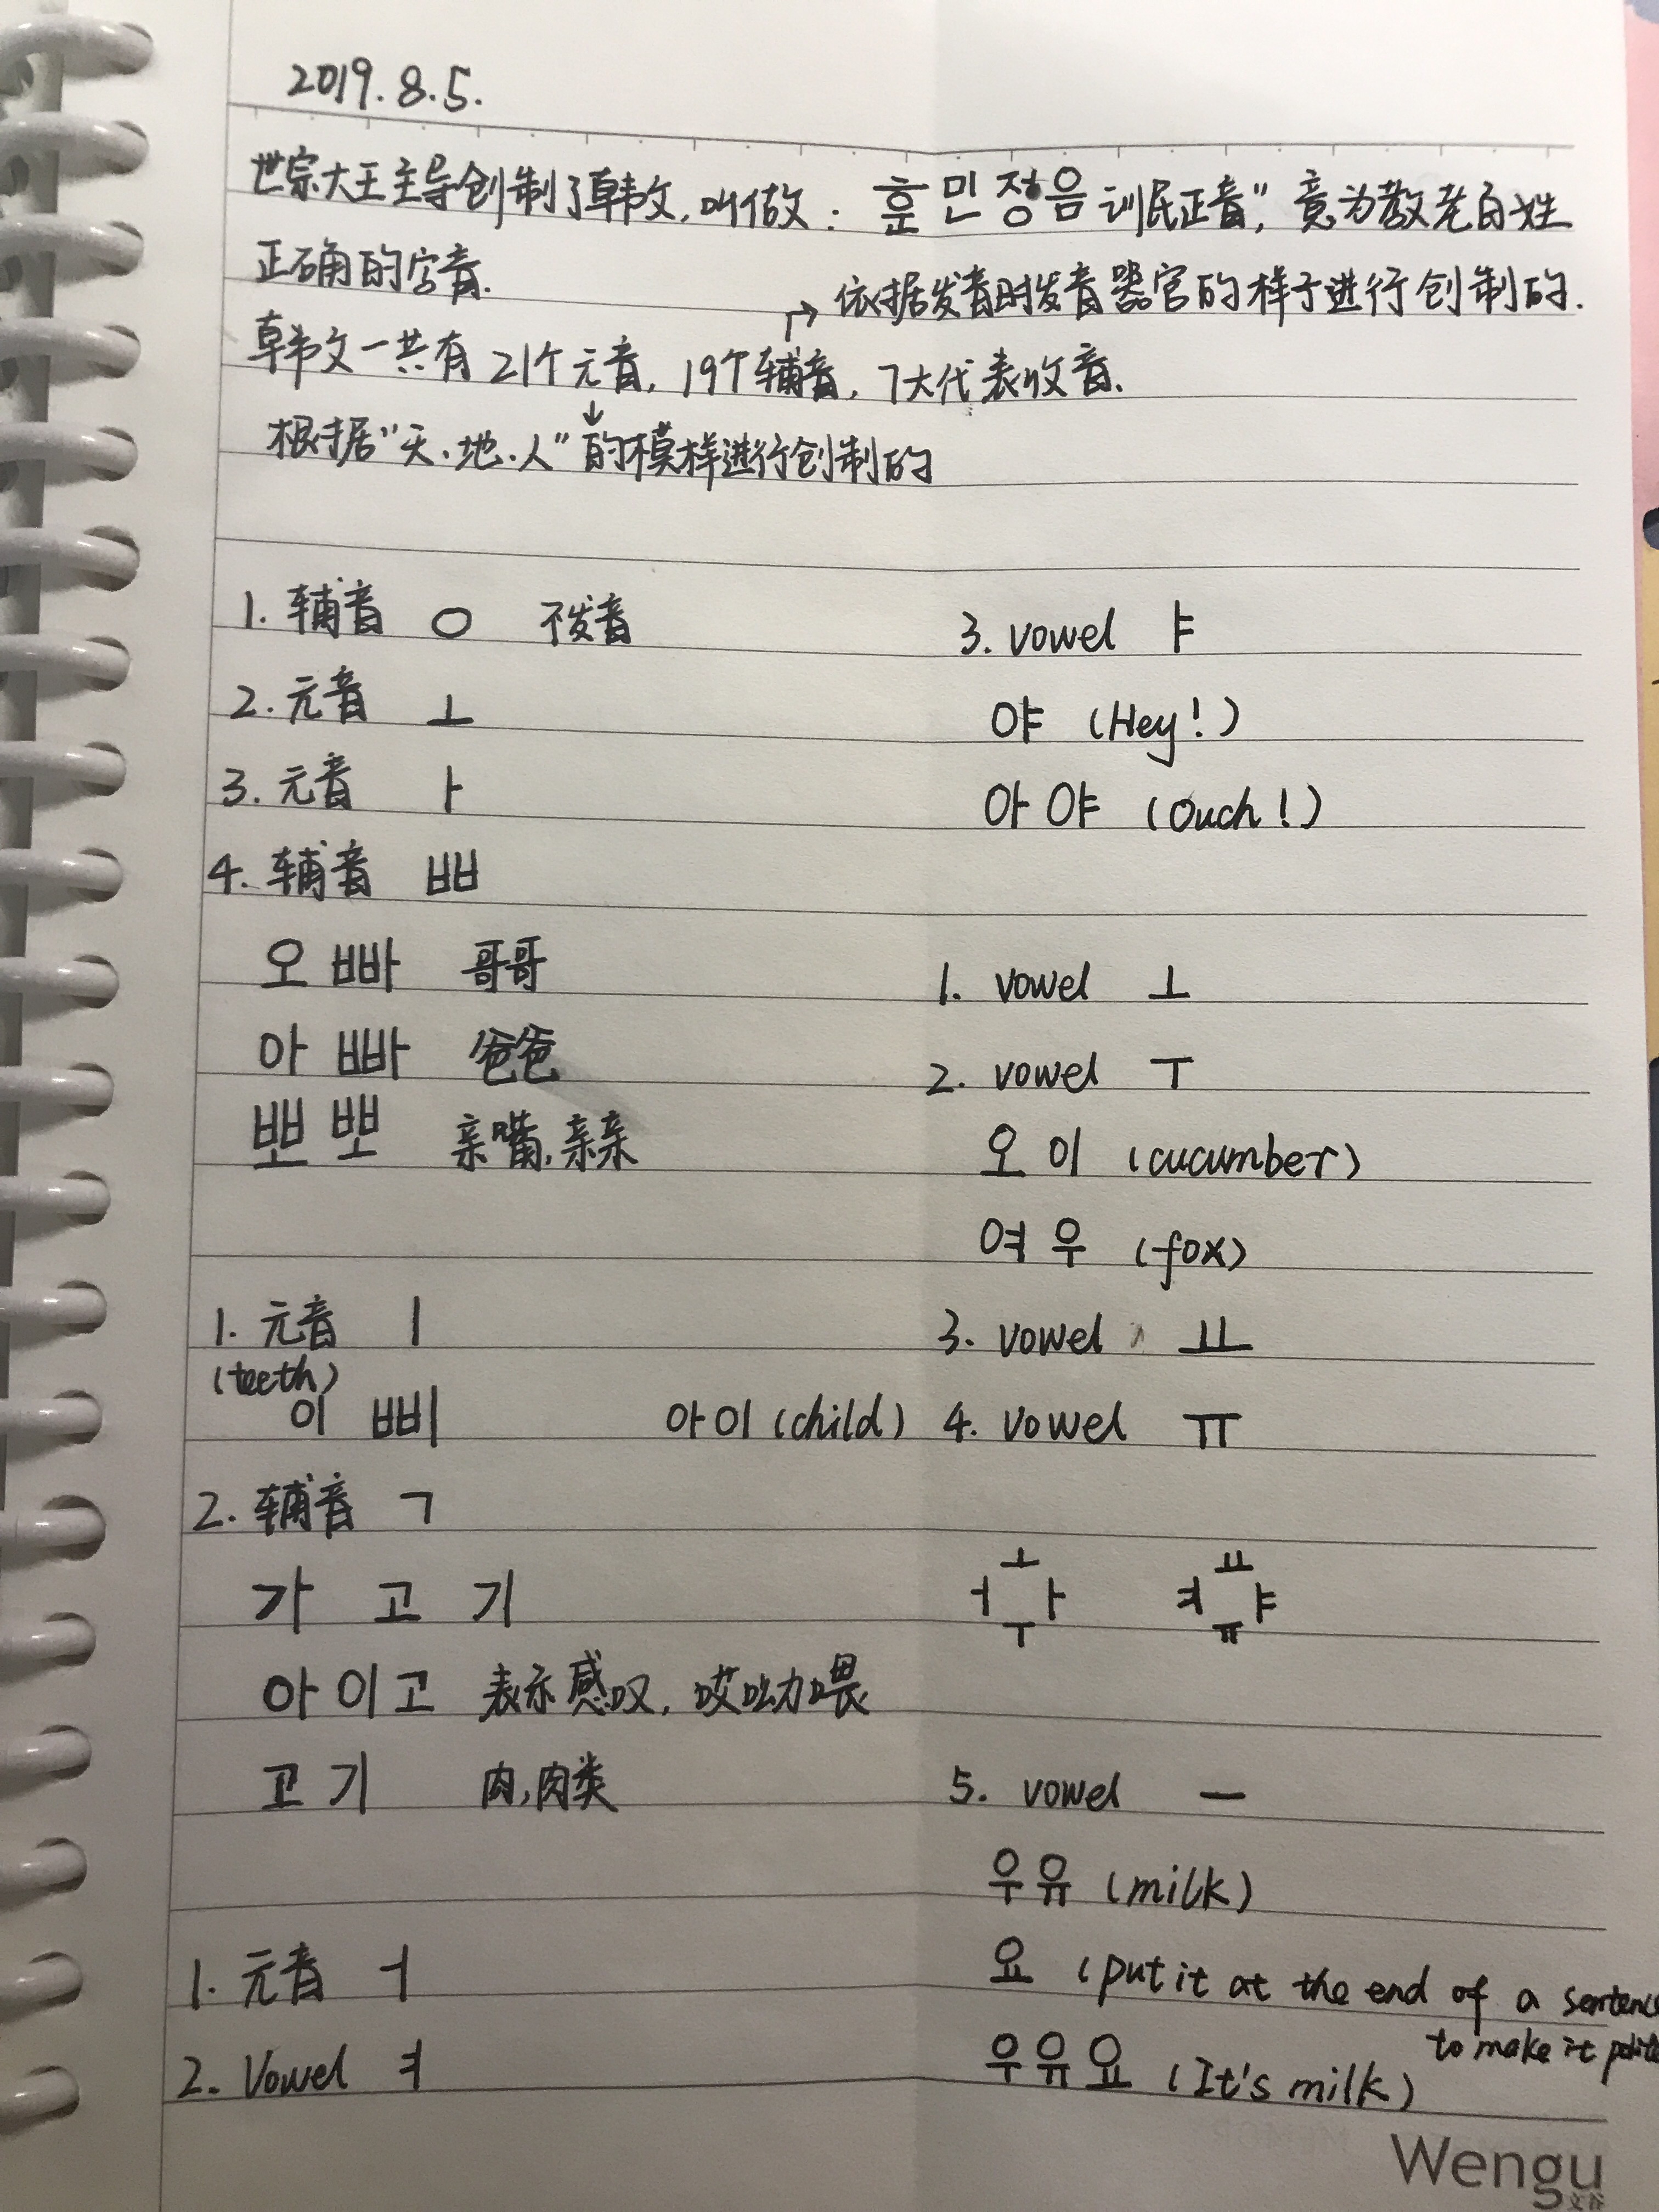 2019.8.5.
世宗大王主导创制了韩文,叫做: 훈민정음 训民正音", 意为教老百姓
正确的字音.
→ 依据发音时发音器官的样子进行创制的.
韩文一共有 21个元音, 19个辅音, 7大代表收音.
↓
根据"天·地·人"的模样进行创制的
1. 辅音 ㅇ 不发音
2. 元音 ㅗ
3. 元音 ㅏ
4. 辅音 ㅃ
오빠 哥哥
아빠 爸爸
뽀뽀 亲嘴,亲亲
1. 元音 ㅣ
(teeth)
이 삐
아이 (child)
2. 辅音 ㄱ
가 고 기
아이고 表示感叹, 哎呦喂
고기 肉,肉类
1. 元音 ㅓ
2. Vowel ㅕ
3. vowel ㅑ
야 (Hey!)
아야 (Ouch!)
1. vowel ㅗ
2. vowel ㅜ
오이 (cucumber)
여우 (fox)
3. vowel ㅛ
4. vowel ㅠ
ㅗ ㅛ
ㅓ ㅏ ㅕ ㅑ
ㅜ ㅠ
5. vowel ㅡ
우유 (milk)
요 (put it at the end of a sentenc
to make it polit
우유요 (It's milk)
Wengu
文谷